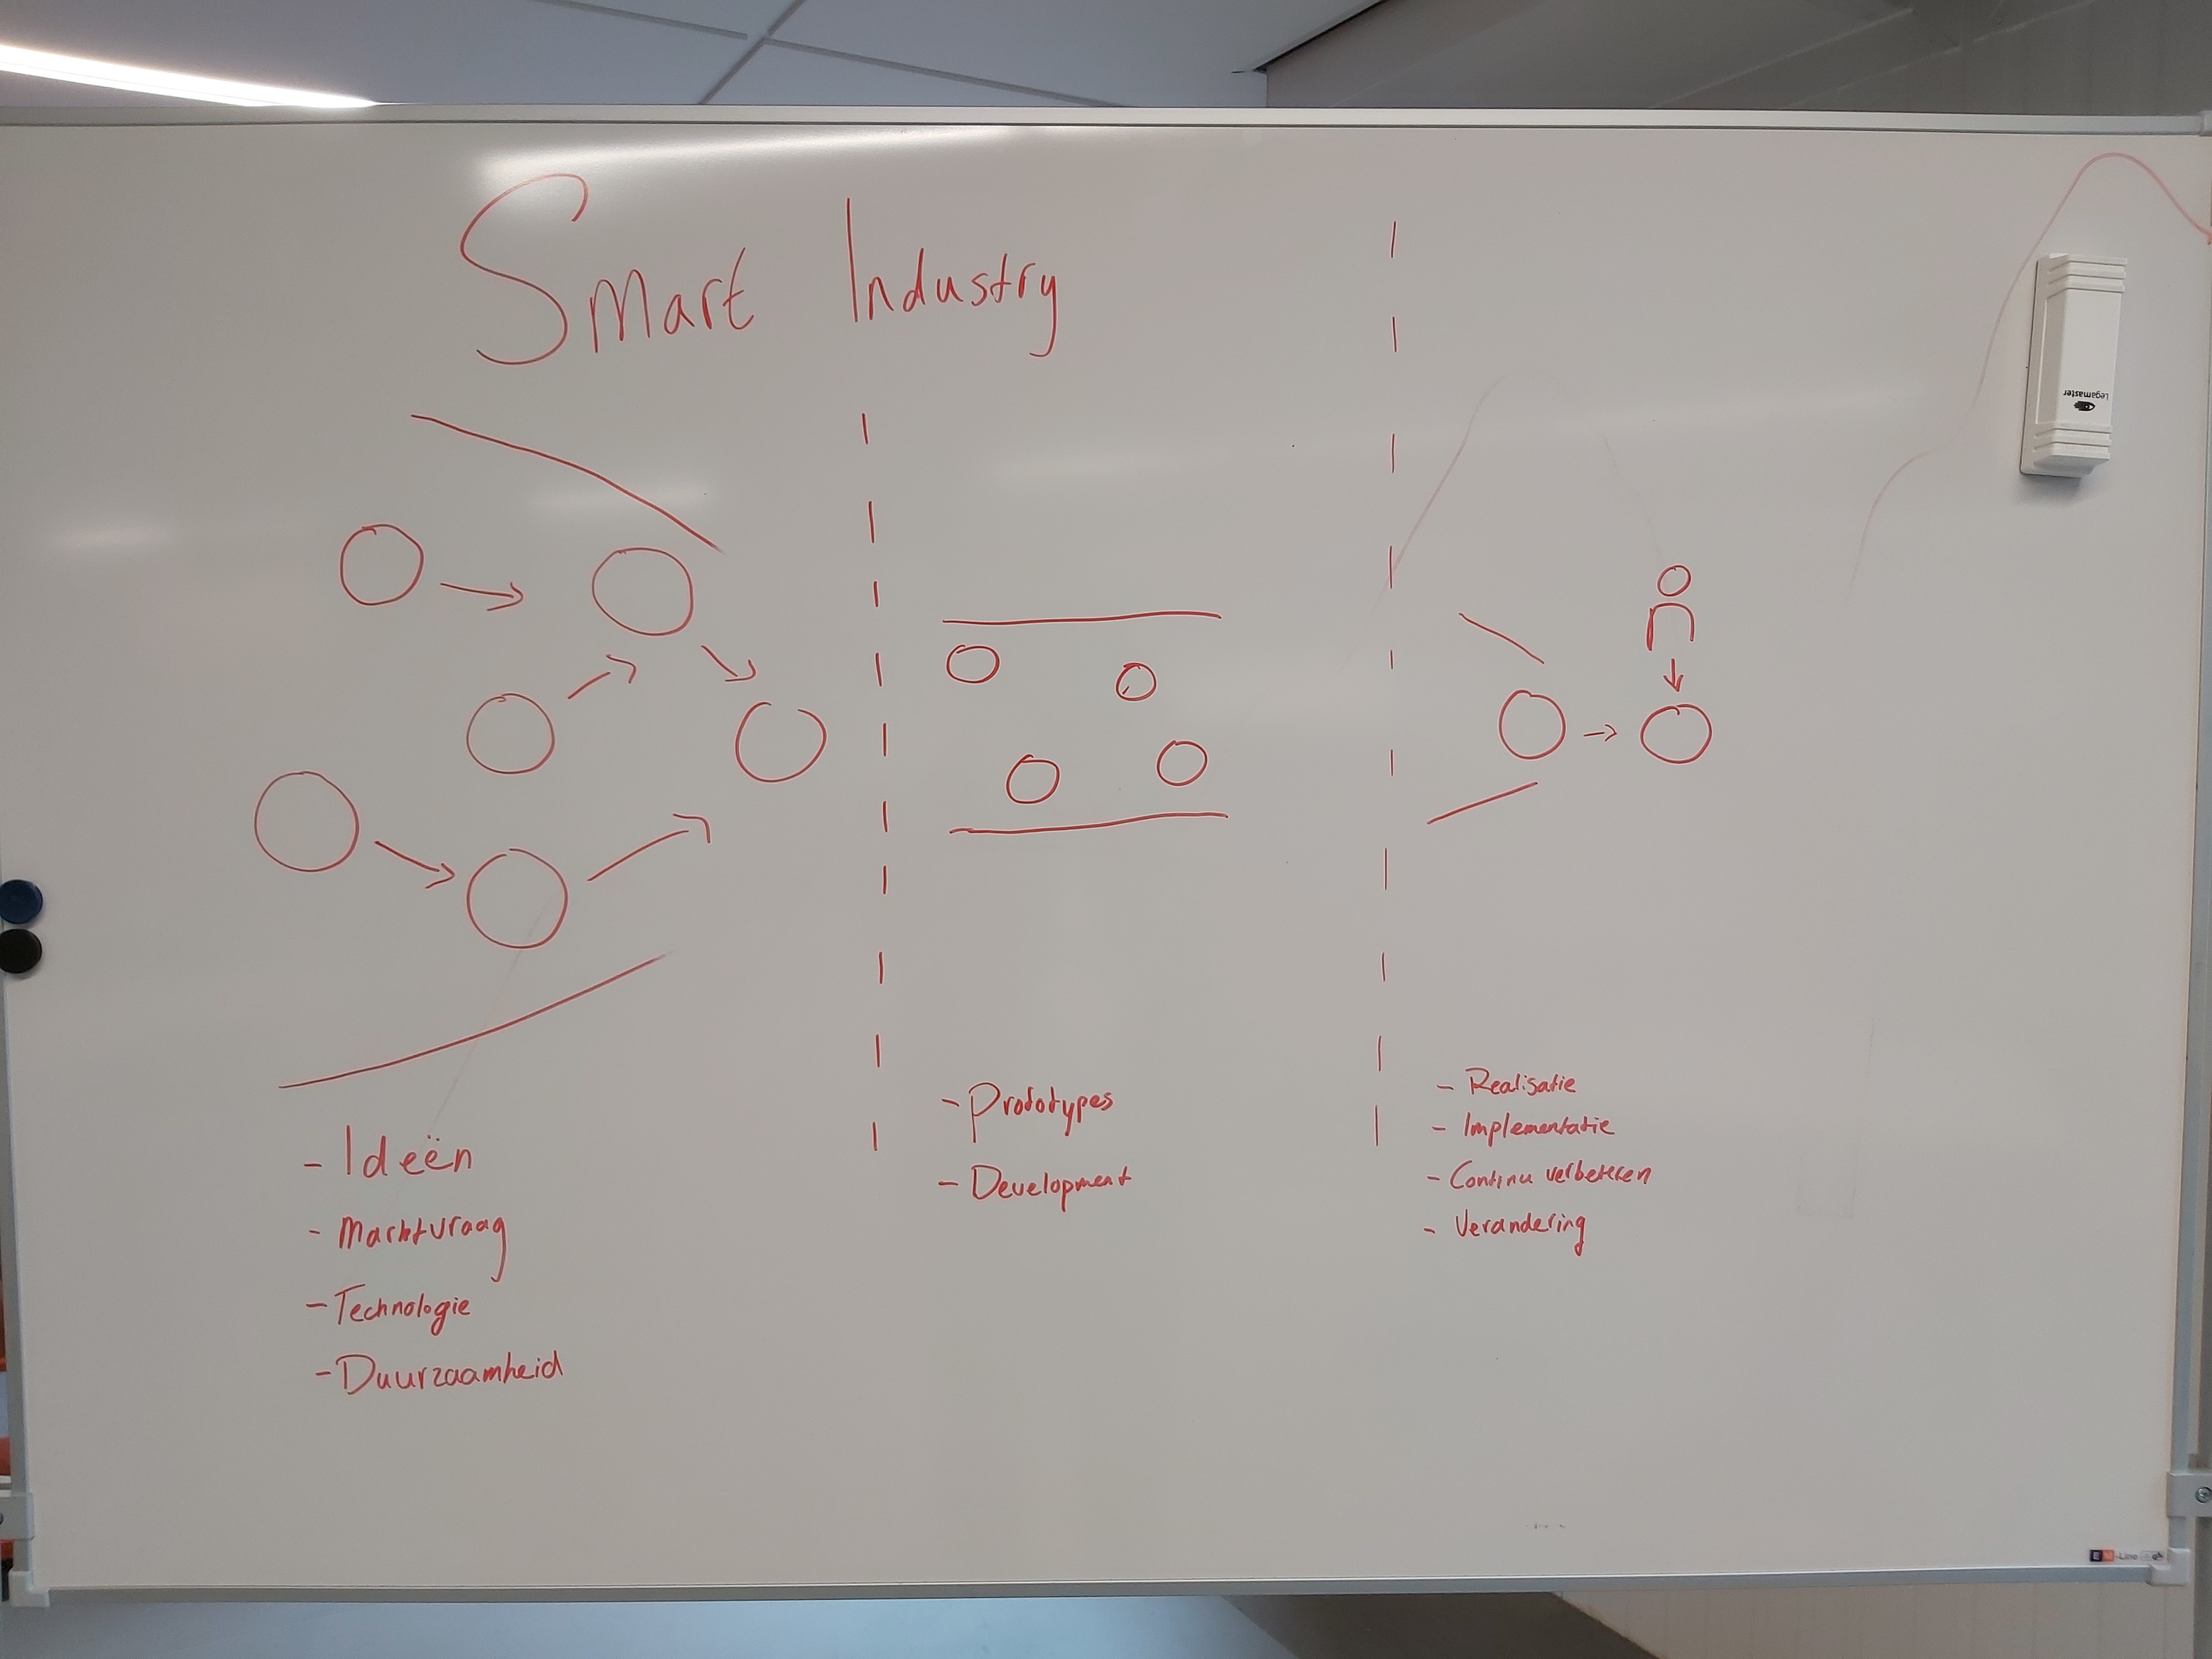 Smart Industry
- Ideeën
- Marktvraag
- Technologie
- Duurzaamheid
- Prototypes
- Development
- Realisatie
- Implementatie
- Continu verbeteren
- Verandering
Legamaster
-Line